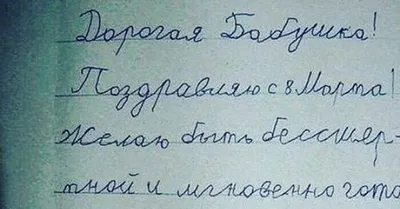 Дорогая Бабушка!
Поздравляю с 8 Марта!
Желаю быть бессмер-
тной и мгновенно гото